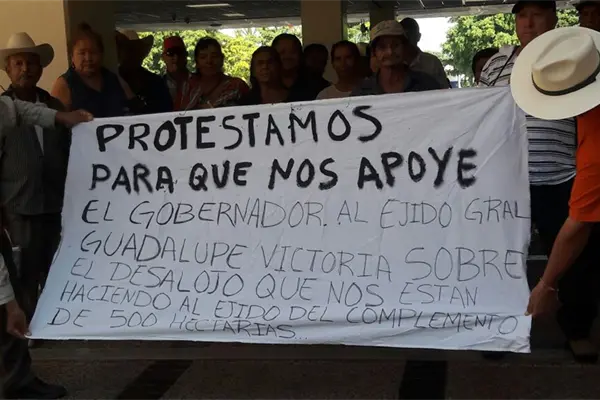 PROTESTAMOS
PARA QUE NOS APOYE
EL GOBERNADOR. AL EJIDO GRAL
GUADALUPE VICTORIA SOBRE
EL DESALOJO QUE NOS ESTAN
HACIENDO AL EJIDO DEL COMPLEMENTO
DE 500 HECTARIAS...